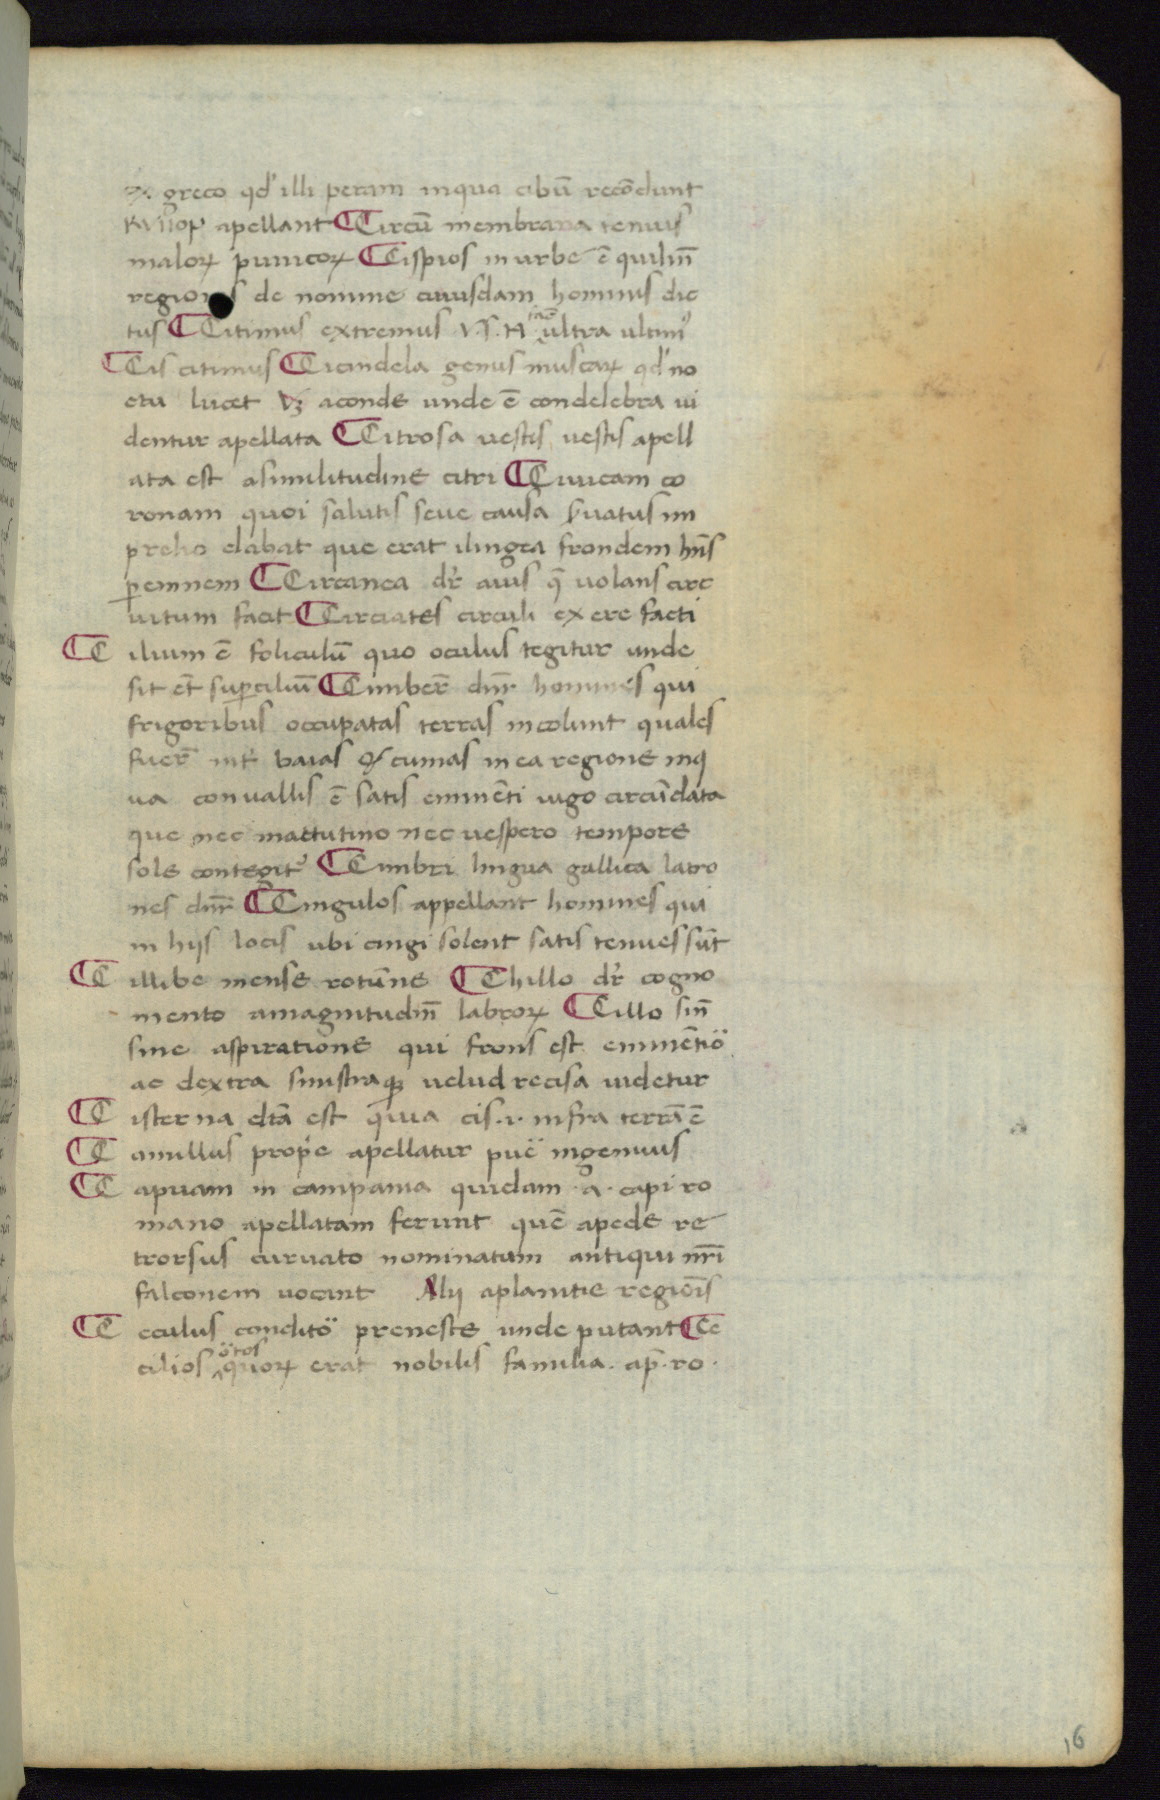 ex greco qd' illi peram inqua cibū recōdunt
apellant ¶ Circū membrana tenuis
maloꝝ punicoꝝ ¶ Cispios in urbe ē quilin̄
regionis de nomine cuiusdam hominis dic
tus ¶ Citimus extremus ultra ultim⁹
¶ Cis citimus ¶ Cicindela genus muscaꝝ qd' no
ctu lucet aconde unde ē condelebra ui
dentur apellata ¶ Citrosa uestis uestis apell
ata est asimilitudine citri ¶ Ciuicam co
ronam quoi salutis seue causa suatus im
prelio dabat que erat ilingea frondem hn̄s
ꝑemnem ¶ Circanea dr̄ auis q̄ uolans circ
uitum facit ¶ Circiates circuli ex ere facti
¶ C ilium ē foliculū quo oculus tegitur unde
sit et̄ suꝑciliū ¶ Cimber̄ dnr̄ homines qui
frigoribus occupatas terras incolunt quales
fuer̄ int̄ baias & cumas in ea regione inq
ua conuallis ē satis eminēti iugo circūdata
que nec mactutino nec uespero tempore
sole contegit᷑ ¶ Cimbri lingua gallica latro
nes dnr̄ ¶ Cingulos appellant homines qui
in hijs locis ubi cingi solent satis tenues sūt
¶ C illibe mense rotūne ¶ Chillo dr̄ cogno
mento amagnitudin̄ labroꝝ ¶ Cillo sin̄
sine aspiratione qui frons est eminētio
ac dextra sinistraqꝫ uelud recisa uidetur
¶ C isterna dta est q̄ ua cis .i. infra terrā ē
¶ C amillus prop̄e apellatur puē ingenuus
¶ C apuam in campania quidam .a. capi ro
mano apellatam ferunt quē apede re
trorsus curuato nominatum antiqui nr̄i
falconem uocant Alij aplanitie regiōis
¶ C eculus condito preneste unde putant ¶ Ce
cilios ortos quoꝝ erat nobilis familia . ap̄ . ro .
16